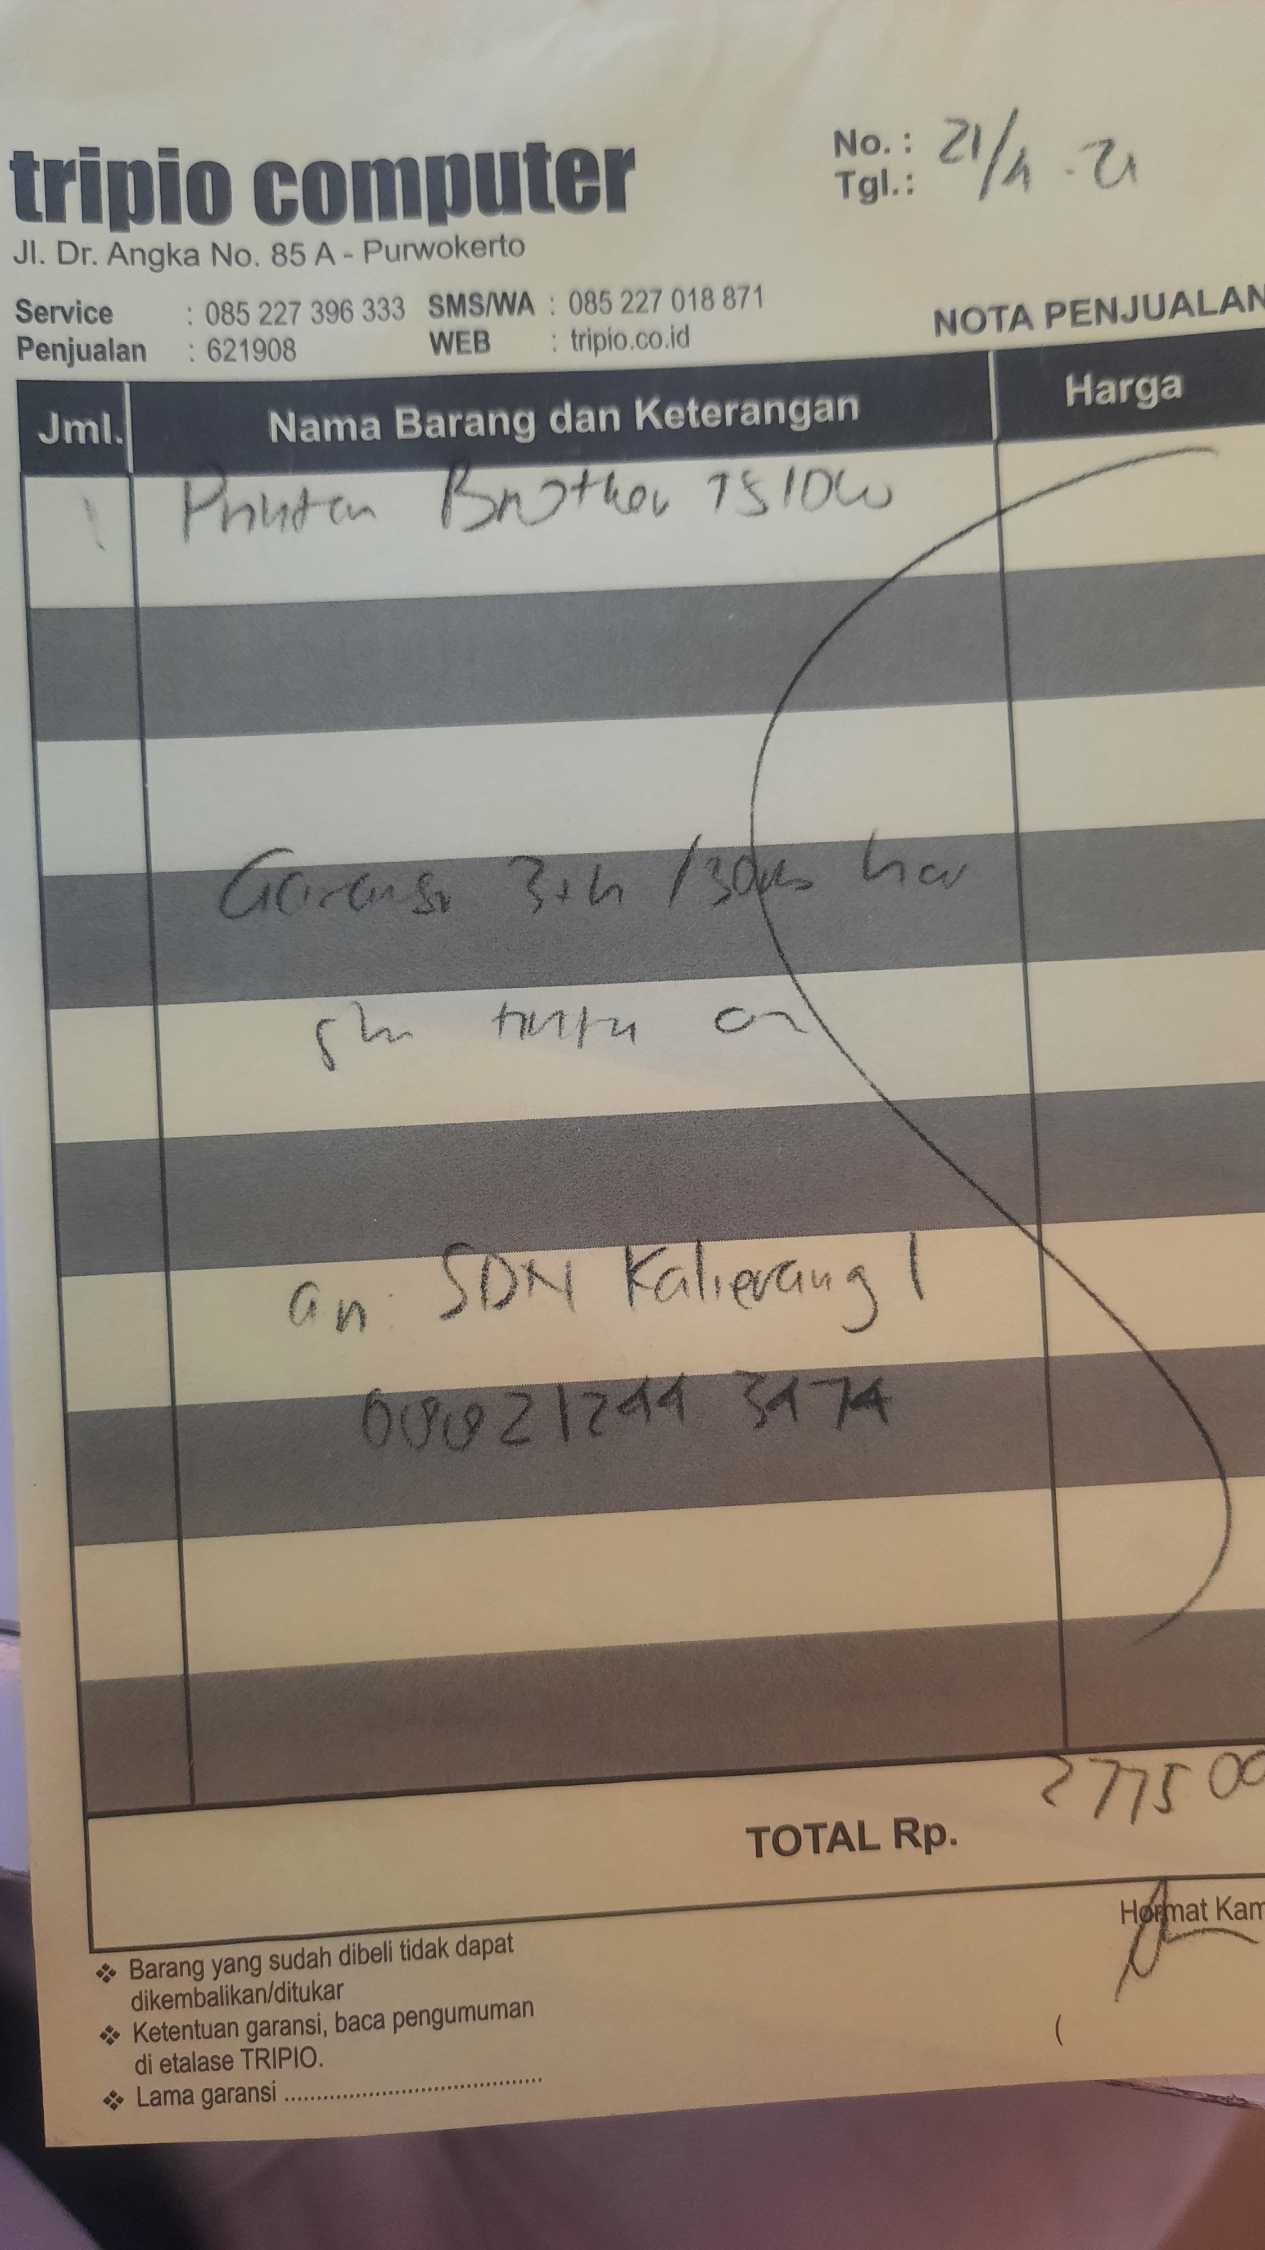 tripio computer
Jl. Dr. Angka No. 85 A - Purwokerto
No. :
Tgl.: 21/4 - 21
Service : 085 227 396 333 SMS/WA : 085 227 018 871
Penjualan : 621908 WEB : tripio.co.id
NOTA PENJUALAN
Jml. Nama Barang dan Keterangan Harga
1 Printer Brother T510W
Garansi 3th /30rb
an. SDN Kalierang 1
TOTAL Rp. 277500
Hormat Kam
❖ Barang yang sudah dibeli tidak dapat
dikembalikan/ditukar
❖ Ketentuan garansi, baca pengumuman
di etalase TRIPIO.
❖ Lama garansi ........................................
(